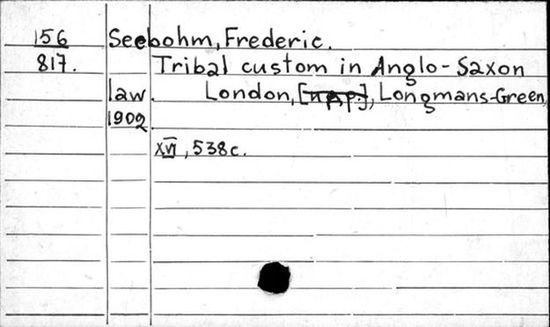 156 Seebohm, Frederic.
817. Tribal custom in Anglo-Saxon
law. London, Longmans-Green,
1902
XVI, 538c.